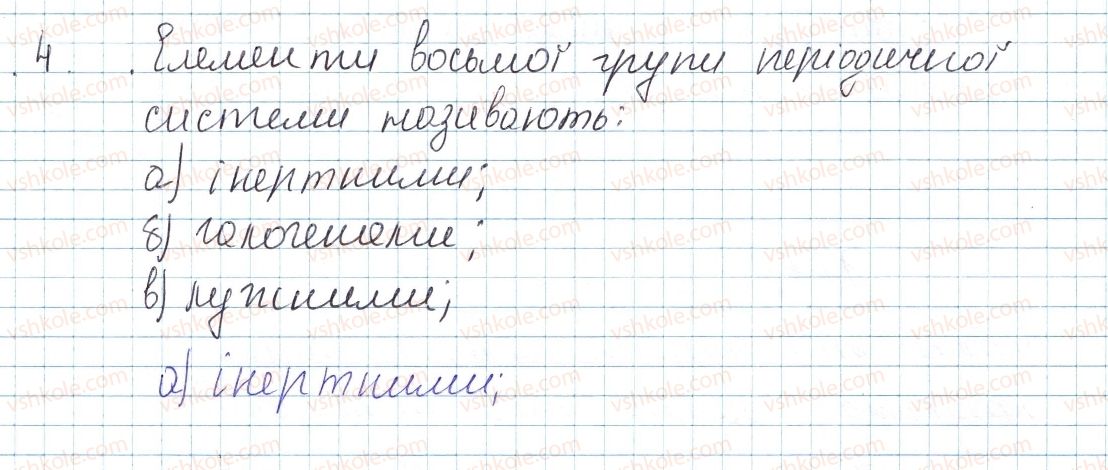 4. Елементи восьмої групи періодичної
системи називають:
а) інертними;
б) галогенами;
в) лужними;
а) інертними;